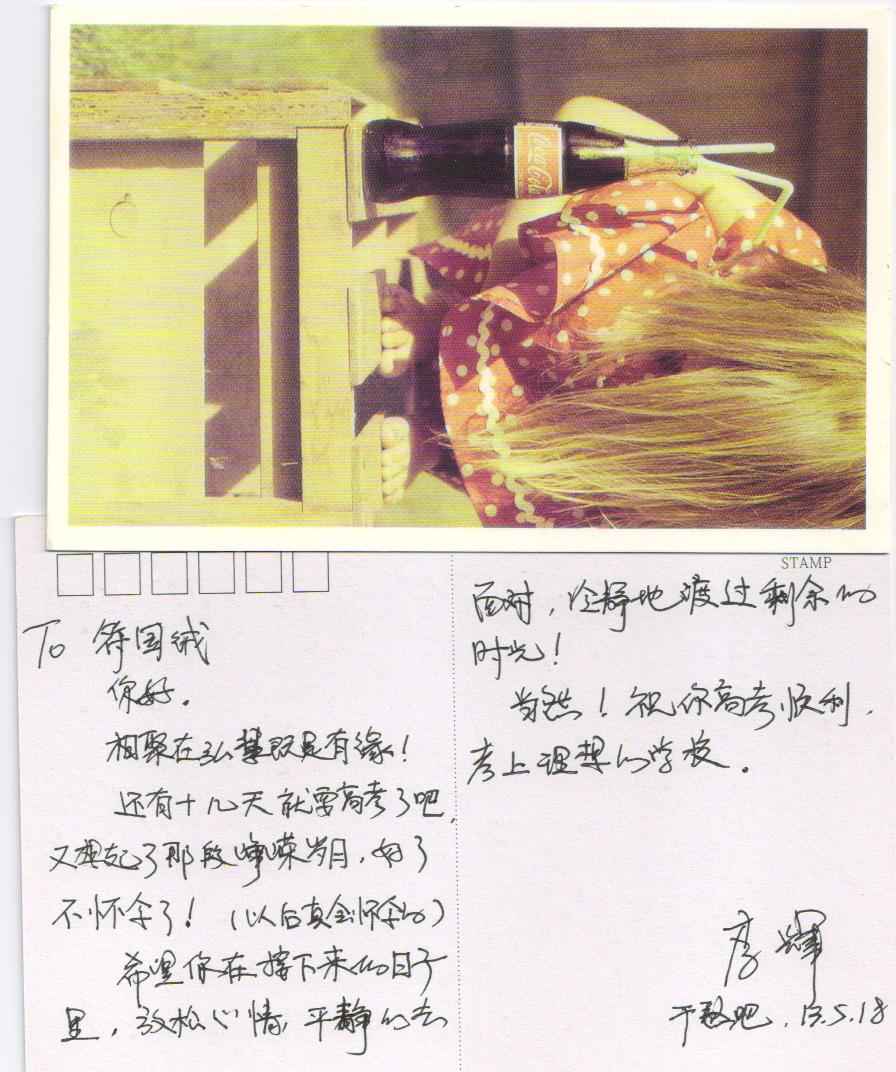 Coca-Cola
STAMP
To 符国绒
你好。
相聚在弘慧既是有缘！
还有十几天就要高考了吧，
又想起了那段峥嵘岁月，好了
不怀念了！（以后真会怀念的）
希望你在接下来的日子
里，放松心情，平静的去
面对，冷静地渡过剩余的
时光！
当然！祝你高考顺利，
考上理想的学校。
辉
吧，13.5.18